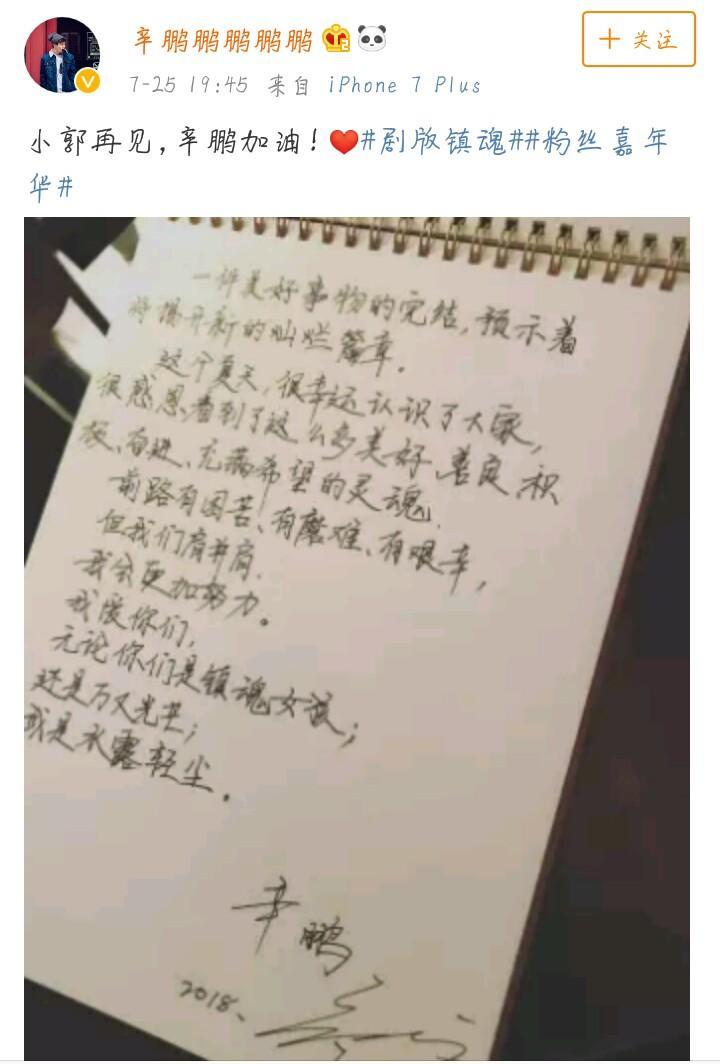 辛鹏鹏鹏鹏鹏
+ 关注
7-25 19:45 来自 iPhone 7 Plus
小郭再见,辛鹏加油!❤️#剧版镇魂##粉丝嘉年
华#
一件美好事物的完结,预示着
将揭开新的灿烂篇章.
这个夏天,很幸运认识了大家,
很感恩,看到了这么多美好、善良、积
极、奋进、充满希望的灵魂.
前路有困苦、有磨难、有艰辛,
但我们肩并肩.
我会更加努力。
我爱你们,
无论你们是镇魂女孩;
还是万丈光芒;
或是水露轻尘.
辛鹏
2018、